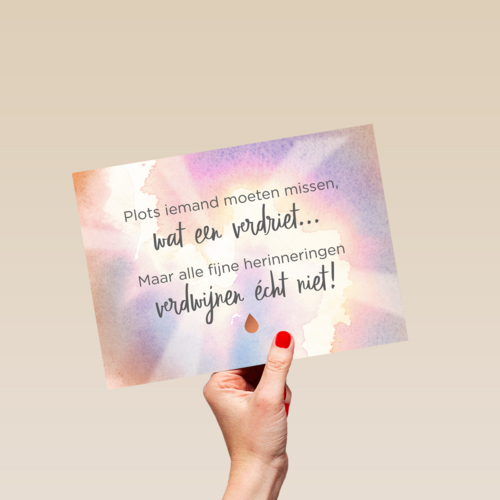 Plots iemand moeten missen,
wat een verdriet...
Maar alle fijne herinneringen
verdwijnen écht niet!